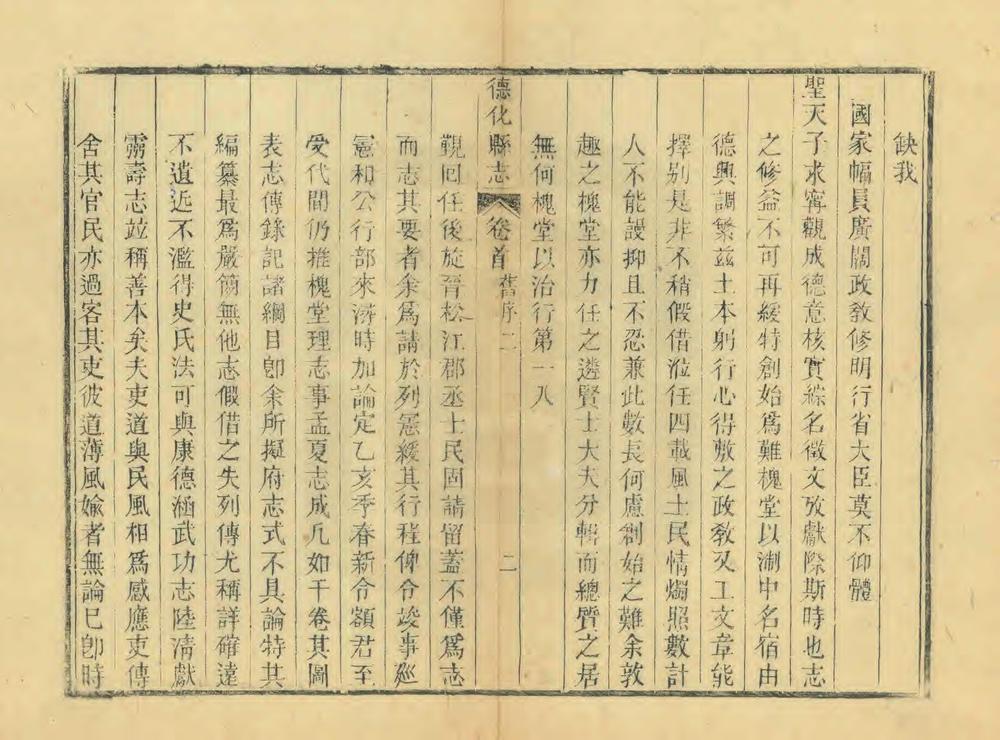 缺我
國家幅員廣闊政教修明行省大臣莫不仰體
聖天子求寧觀成德意核實綜名徵文攷獻際斯時也志
之修益不可再緩特創始爲難槐堂以浙中名宿由
德興調繁茲土本躬行心得敷之政教又工文章能
擇别是非不稍假借涖任四載風土民情燭照數計
人不能謾抑且不忍兼此數長何慮創始之難余敦
趣之槐堂亦力任之遴賢士大夫分輯而總質之居
無何槐堂以治行第一入
德化縣志 卷首 舊序二 二
覲回任後旋晉松江郡丞士民固請留蓋不僅爲志
而志其要者余爲請於列憲緩其行程俾令竣事廵
憲和公行部來潯時加論定乙亥季春新令額君至
受代間仍推槐堂理志事孟夏志成凡如干卷其圖
表志傳錄記諸綱目卽余所擬府志式不具論特其
編纂最爲嚴簡無他志假借之失列傳尤稱詳確遠
不遺近不濫得史氏法可與康德涵武功志陸淸獻
靈壽志並稱善本矣夫吏道與民風相爲感應吏傳
舍其官民亦過客其吏彼道薄風媮者無論已卽時